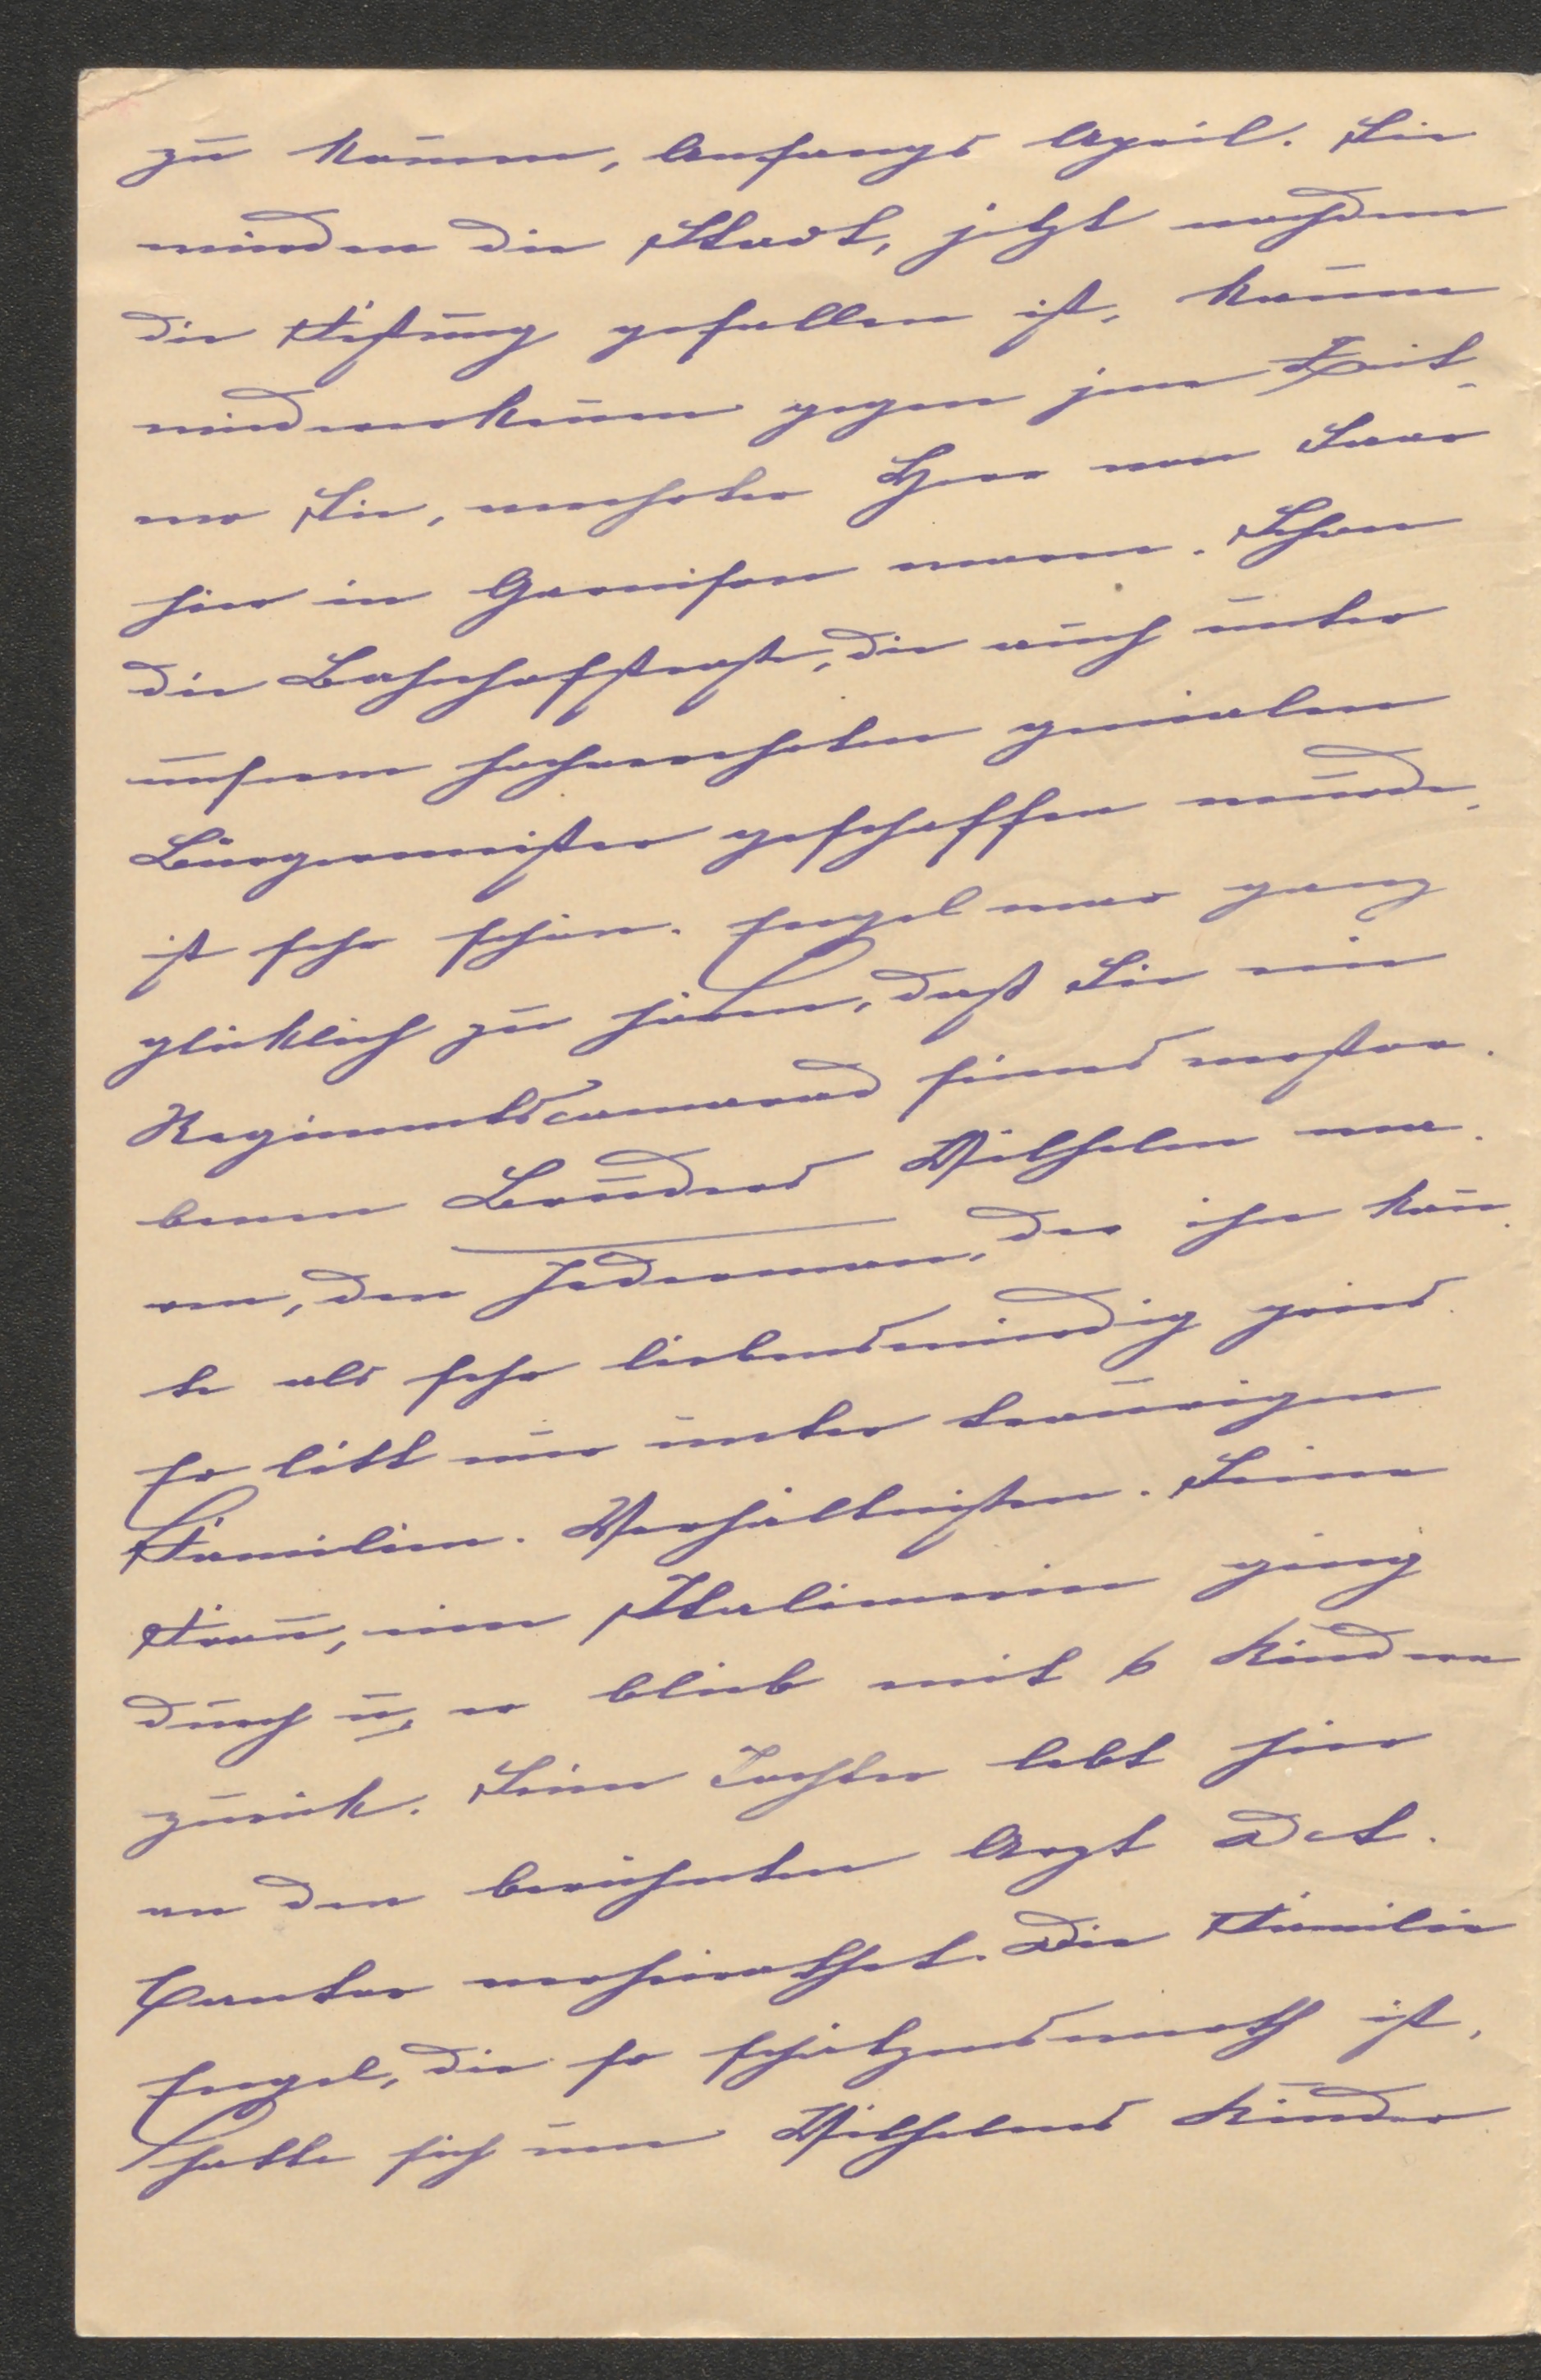 zu kom̄en, Anfangs April. Sie
würden die Stadt, jetzt nachdem
die Festung gefallen ist, kaum
wiedererkennen gegen jene Zeit,
wo Sie, verehrter Herr von Saar
hier in Garnison waren. Schon
die Bahnhofstraße, die auch unter
unserem hochverehrten genialen
Bürgermeister geschaffen wurde,
ist sehr schön. Engel war ganz
glücklich zu hören, daß Sie ein
Regimentscamarad seines verstor-
benen Bruders Wilhelm wa-
ren, den Jedermann, der ihn kan̄-
te als sehr liebenswürdig pries.
Er litt nur unter traurigen
Familien-Verhältnißen. Seine
Frau, eine Italienerin ging
durch u. er blieb mit 6 Kindern
zurück. Seine Tochter lebt hier
an den berühmten Arzt Dct.
Cantor verheirathet. Die Familie
Engel, die so schätzenswerth ist,
hatte sich um Wilhelms Kinder